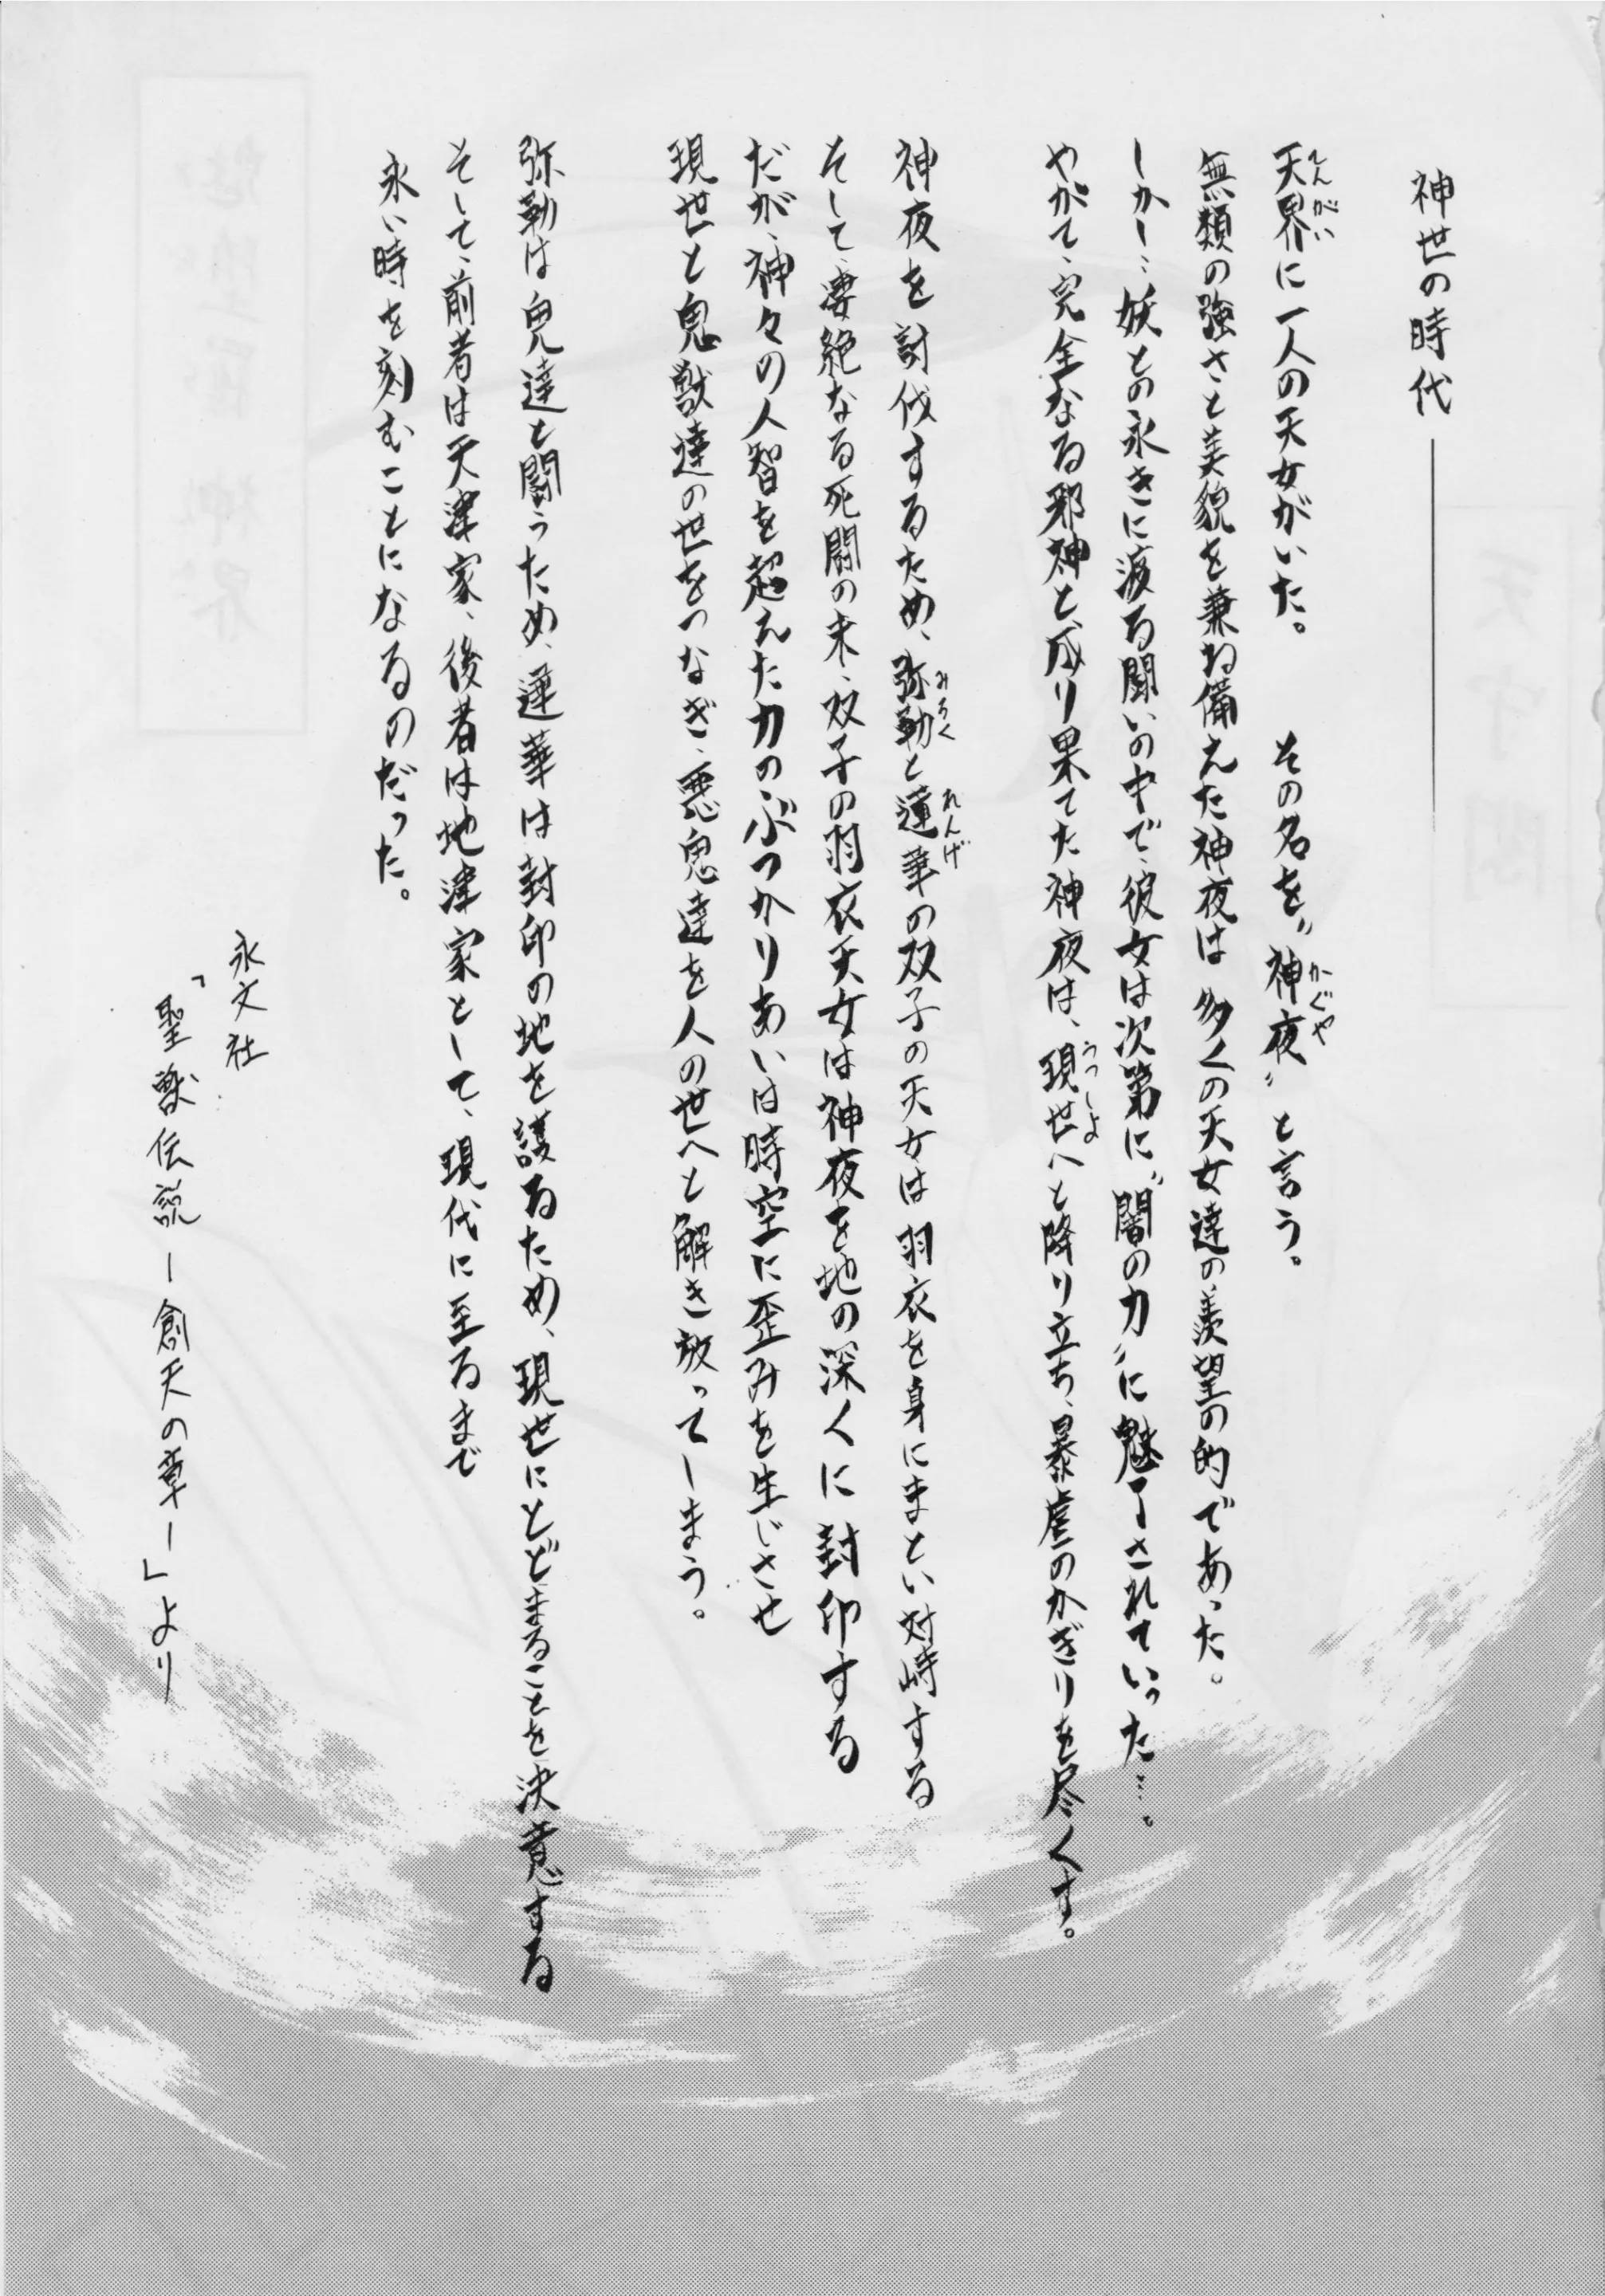 神世の時代――――――
天界に一人の天女がいた。　その名を〝神夜〟と言う。
てんがい
かぐや
無類の強さと美貌を兼ね備えた神夜は多くの天女達の羨望の的であった。
しかし…妖との永きに渡る闘いの中で、彼女は次第に〝闇の力〟に魅了されていった…。
やがて、完全なる邪神と成り果てた神夜は、現世へと降り立ち、暴虐のかぎりを尽くす。
うつしよ
神夜を討伐するため、弥勒と蓮華の双子の天女は羽衣を身にまとい対峙する
みろく
れんげ
そして、凄絶なる死闘の末、双子の羽衣天女は神夜を地の深くに封印する
だが、神々の人智を超えた力のぶつかりあいは時空に歪みを生じさせ
現世と鬼獣達の世をつなぎ、悪鬼達を人の世へと解き放ってしまう。
弥勒は鬼達と闘うため、蓮華は封印の地を護るため、現世にとどまることを決意する
そして、前者は天津家、後者は地津家として、現代に至るまで
永い時を刻むことになるのだった。
永文社
「聖獣伝説―創天の章―」より